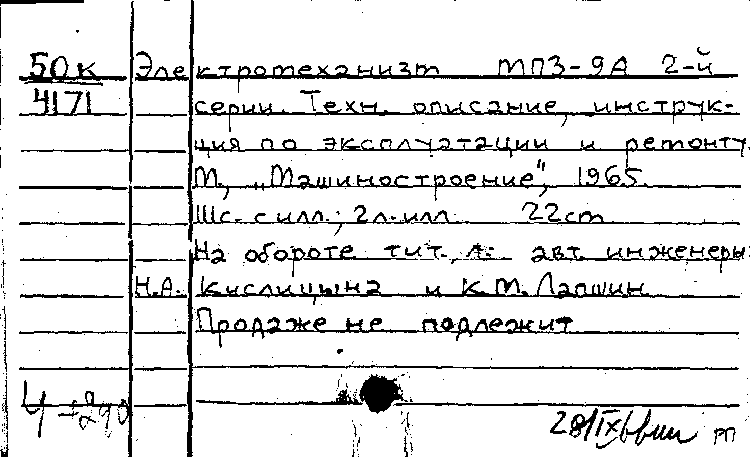 50к Электромеханизм МПЗ-9А 2-й
4171 серии. Техн. описание, инструк-
ция по эксплуатации и ремонту.
М., „Машиностроение", 1965.
111с. с илл.; 2л. илл. 22cm
На обороте тит. л.: авт. инженеры:
Н.А. Кислицына и К.М. Лапшин
Продаже не подлежит
Ч
28/IX РП